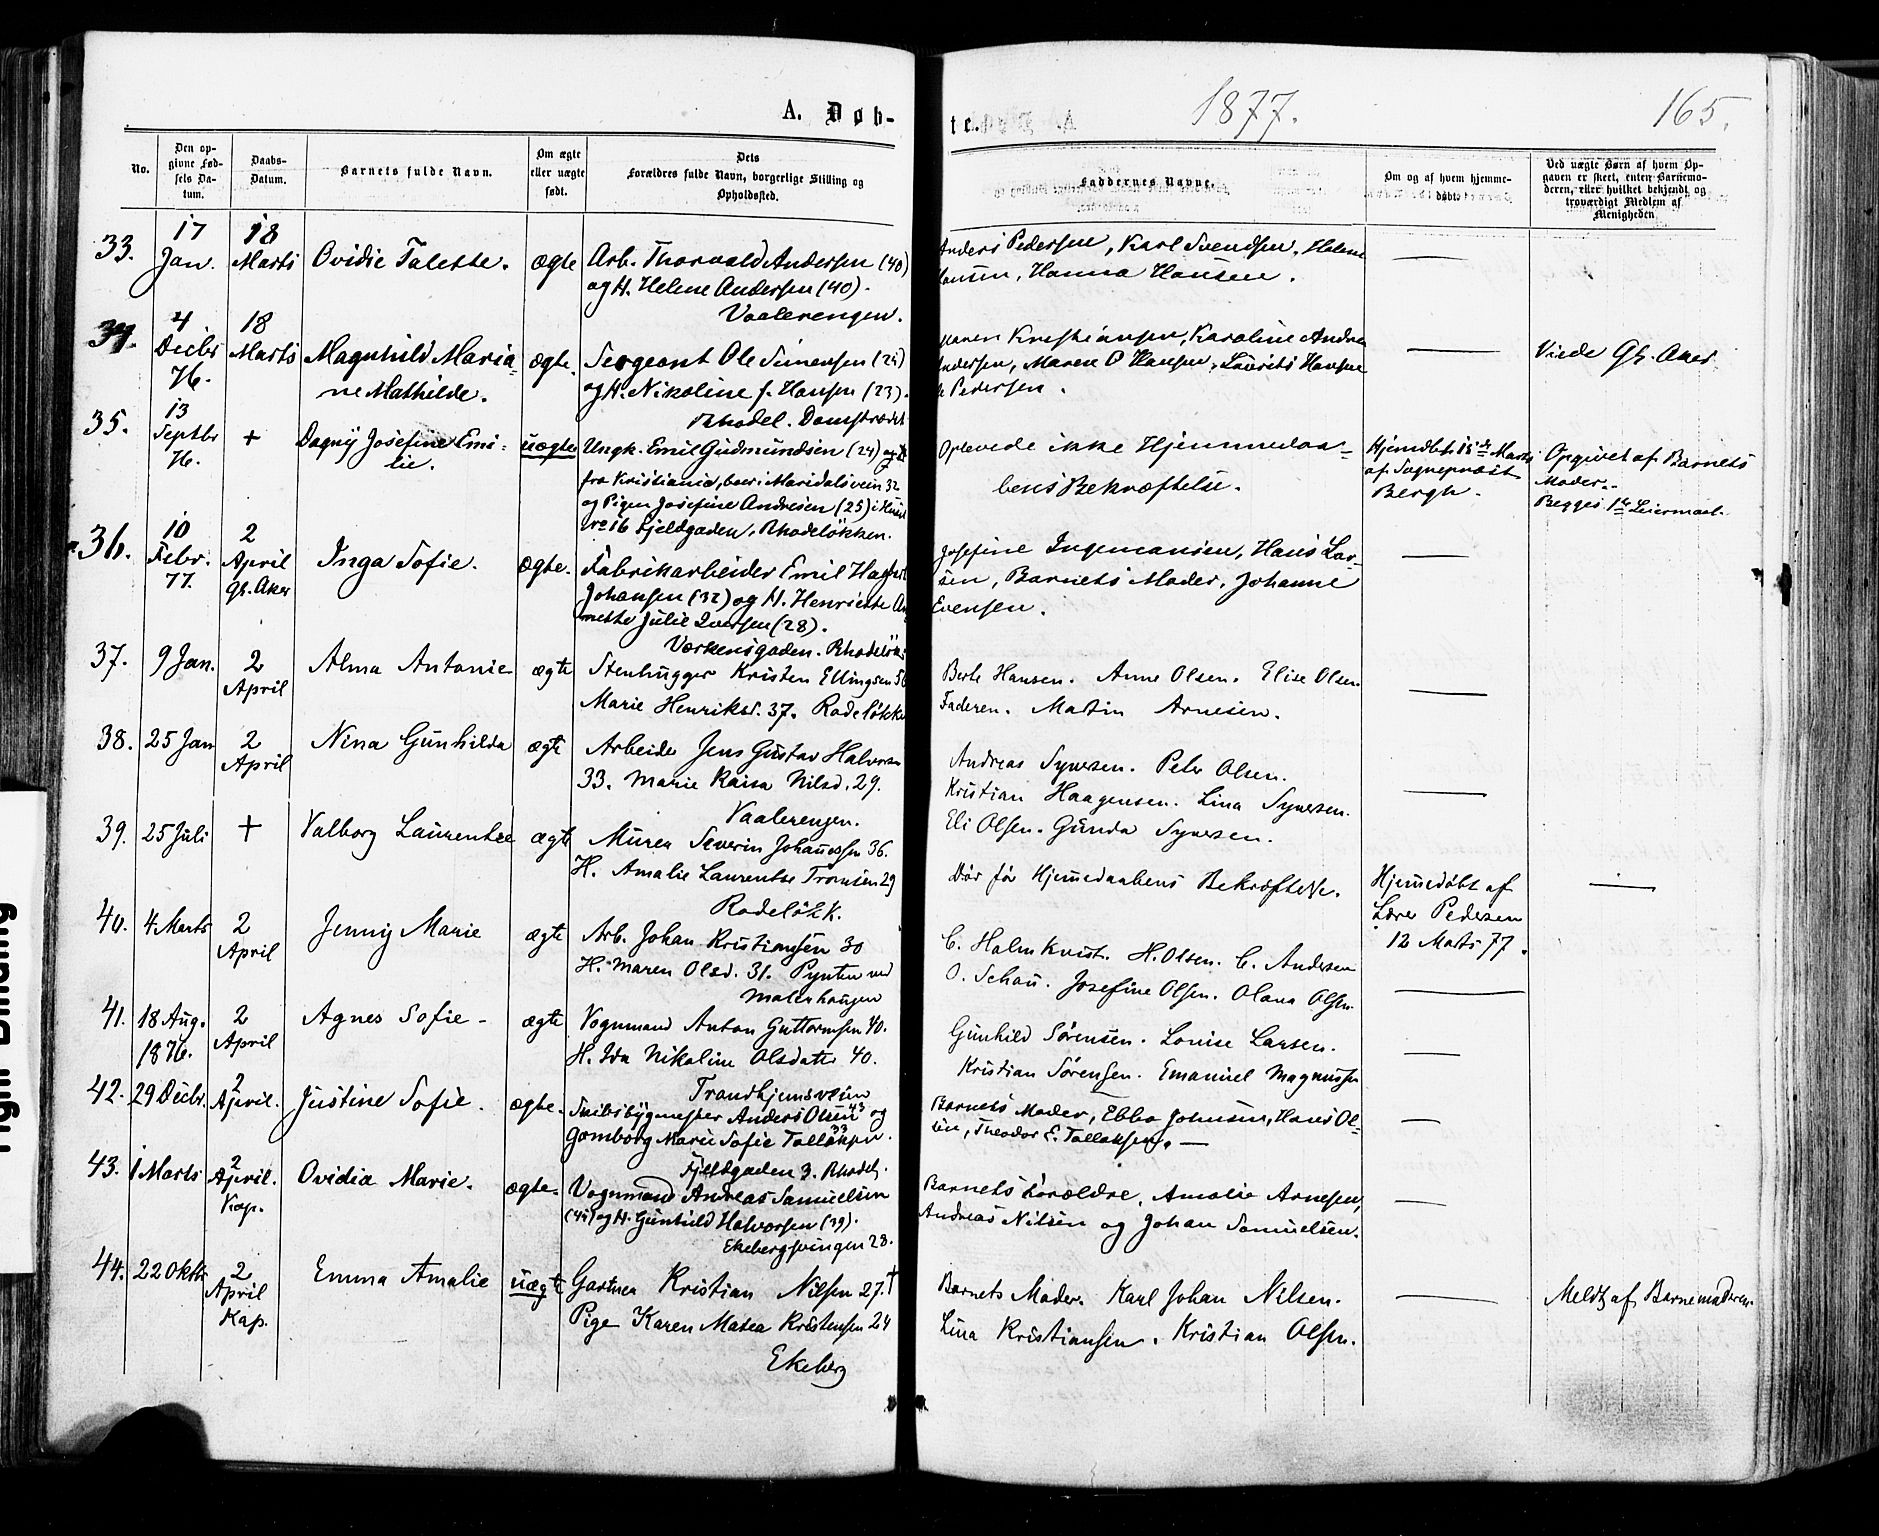 A. Døb-
No.
Den op-
givne Fød-
sels Da-
tum.
Daabs-
Datum.
Barnets fulde Navn.
Om ægte
eller uægte
født.
Dets
Forældres fulde Navn, borgerlige Stilling og
Opholdssted.
33.
17
Jan.
18
Marts
Ovidie Talette.
ægte
Arb. Thorvald Andersen (40)
og H. Helene Andersen (40).
Vaalerengen.
34.
4
Decbr
76.
18
Marts
Magnhild Maria-
ne Mathilde.
ægte.
Sergeant Ole Simensen (25)
og H. Nikoline f. Hansen (23).
Rhodel. Damstrædet
35.
13
Septbr
76.
+
Dagny Josefine Emi-
lie.
uægte
Ungk. Emil Gudmundsen (24)
fra Kristiania, boer i Maridalsvein 32
og Pigen Josefine Andresen (25) i Huus
no 16 Fjeldgaden, Rhodeløkken.
36.
10
Febr.
77.
2
April
Gl. Aker
Inga Sofie.
ægte.
Fabrikarbeider Emil
Johansen (32) og H. Henriette An
nette Julie Iversen (28).
Værkensgaden. Rhodeløk.
37.
9 Jan.
2
April
Alma Antonie
ægte
Stenhugger Kristen Ellingsen 56
Marie Henriksd. 37. Rodeløkke
38.
25 Jan
2
April
Nina Gunhilda
ægte
Arbeider Jens Gustav Halvorsen
33. Marie Kaisa Nilsd. 29.
Vaalerengen.
39.
25 Juli
+
Valborg Laurentze
ægte
Murer Severin Johannessen 36.
H. Amalie Laurentse Tromsen 29
Rodeløkk.
40.
4 Marts
2
April
Jenny Marie
ægte
Arb. Johan Kristiansen 30
H. Maren Olsd. 31. Pynten ved
Malerhaugen
41.
18 Aug.
1876.
2
April
Agnes Sofie -
ægte
Vognmand Anton Guttormsen 40.
H. Ida Nikoline Olsdatter 40.
Trondhjemsveien
42.
29 Decbr.
2
April.
Justine Sofie.
ægte.
Skibsbygmester Anders Olsen 43 og
Gomborg Marie Sofie Tollaksen 33.
Fjeldgaden 3. Rhodelj.
43.
1 Marts
2
April.
Kap.
Ovidia Marie.
ægte.
Vognmand Andreas Samuelsen
(45) og H. Gunhild Halvorsen (39).
Ekebergsvingen 28.
44.
22 Oktbr
2
April
Kap.
Emma Amalie
uægte
Gartner Kristian Nilsen 27. †
Pige Karen Matea Kristensen 24
Ekeberg
te.
1877.
165.
Faddernes Navne.
Om og af hvem hjemme-
døbt.
Ved uægte Børn af hvem Op-
gaven er skeet, enten Barnemo-
deren, eller hvilket bekjendt og
troværdigt Medlem af
Menigheden
Anders Pedersen, Karl Svendsen, Helene
Hansen, Hanna Hansen.
Kristiansen, Karoline Andrea
Andersen, Maren O Hansen, Laurits Hansen
Pedersen.
Viede Gl. Aker.
Oplevede ikke Hjemmedaa-
bens Bekræftelse.
Hjemdbt 15de Marts
af Sogneprest
Bergh.
Opgivet af Barnets
Moder.
Begges 1ste Leiermaal.
Josefine Ingemansen, Hans Lar-
sen, Barnets Moder, Johanne
Evensen.
Berte Hansen. Anne Olsen. Elise Olsen
Faderen. Martin Arnesen.
Andreas Syversen. Peter Olsen.
Kristian Haagensen. Lina Syversen.
Eli Olsen. Gunda Syversen.
Dør før Hjemmedaabens Bekræftelse.
Hjemmedøbt af
Lærer Pedersen
12 Marts 77.
C. Halmkvist. H. Olsen. C. Andersen
O. Schau. Josefine Olsen. Olava Olsen.
Gunhild Sørensen. Lovise Larsen.
Kristian Sørensen. Emanuel Magnussen
Barnets Moder, Ebba Johnsen, Hans Ol-
sen, Theodor E. Tollaksen. —
Barnets Forældre, Amalie Arnesen,
Andreas Nilsen og Johan Samuelsen.
Barnets Moder. Karl Johan Nilsen.
Lina Kristiansen. Kristian Olsen.
Meldt af Barnemoderen.